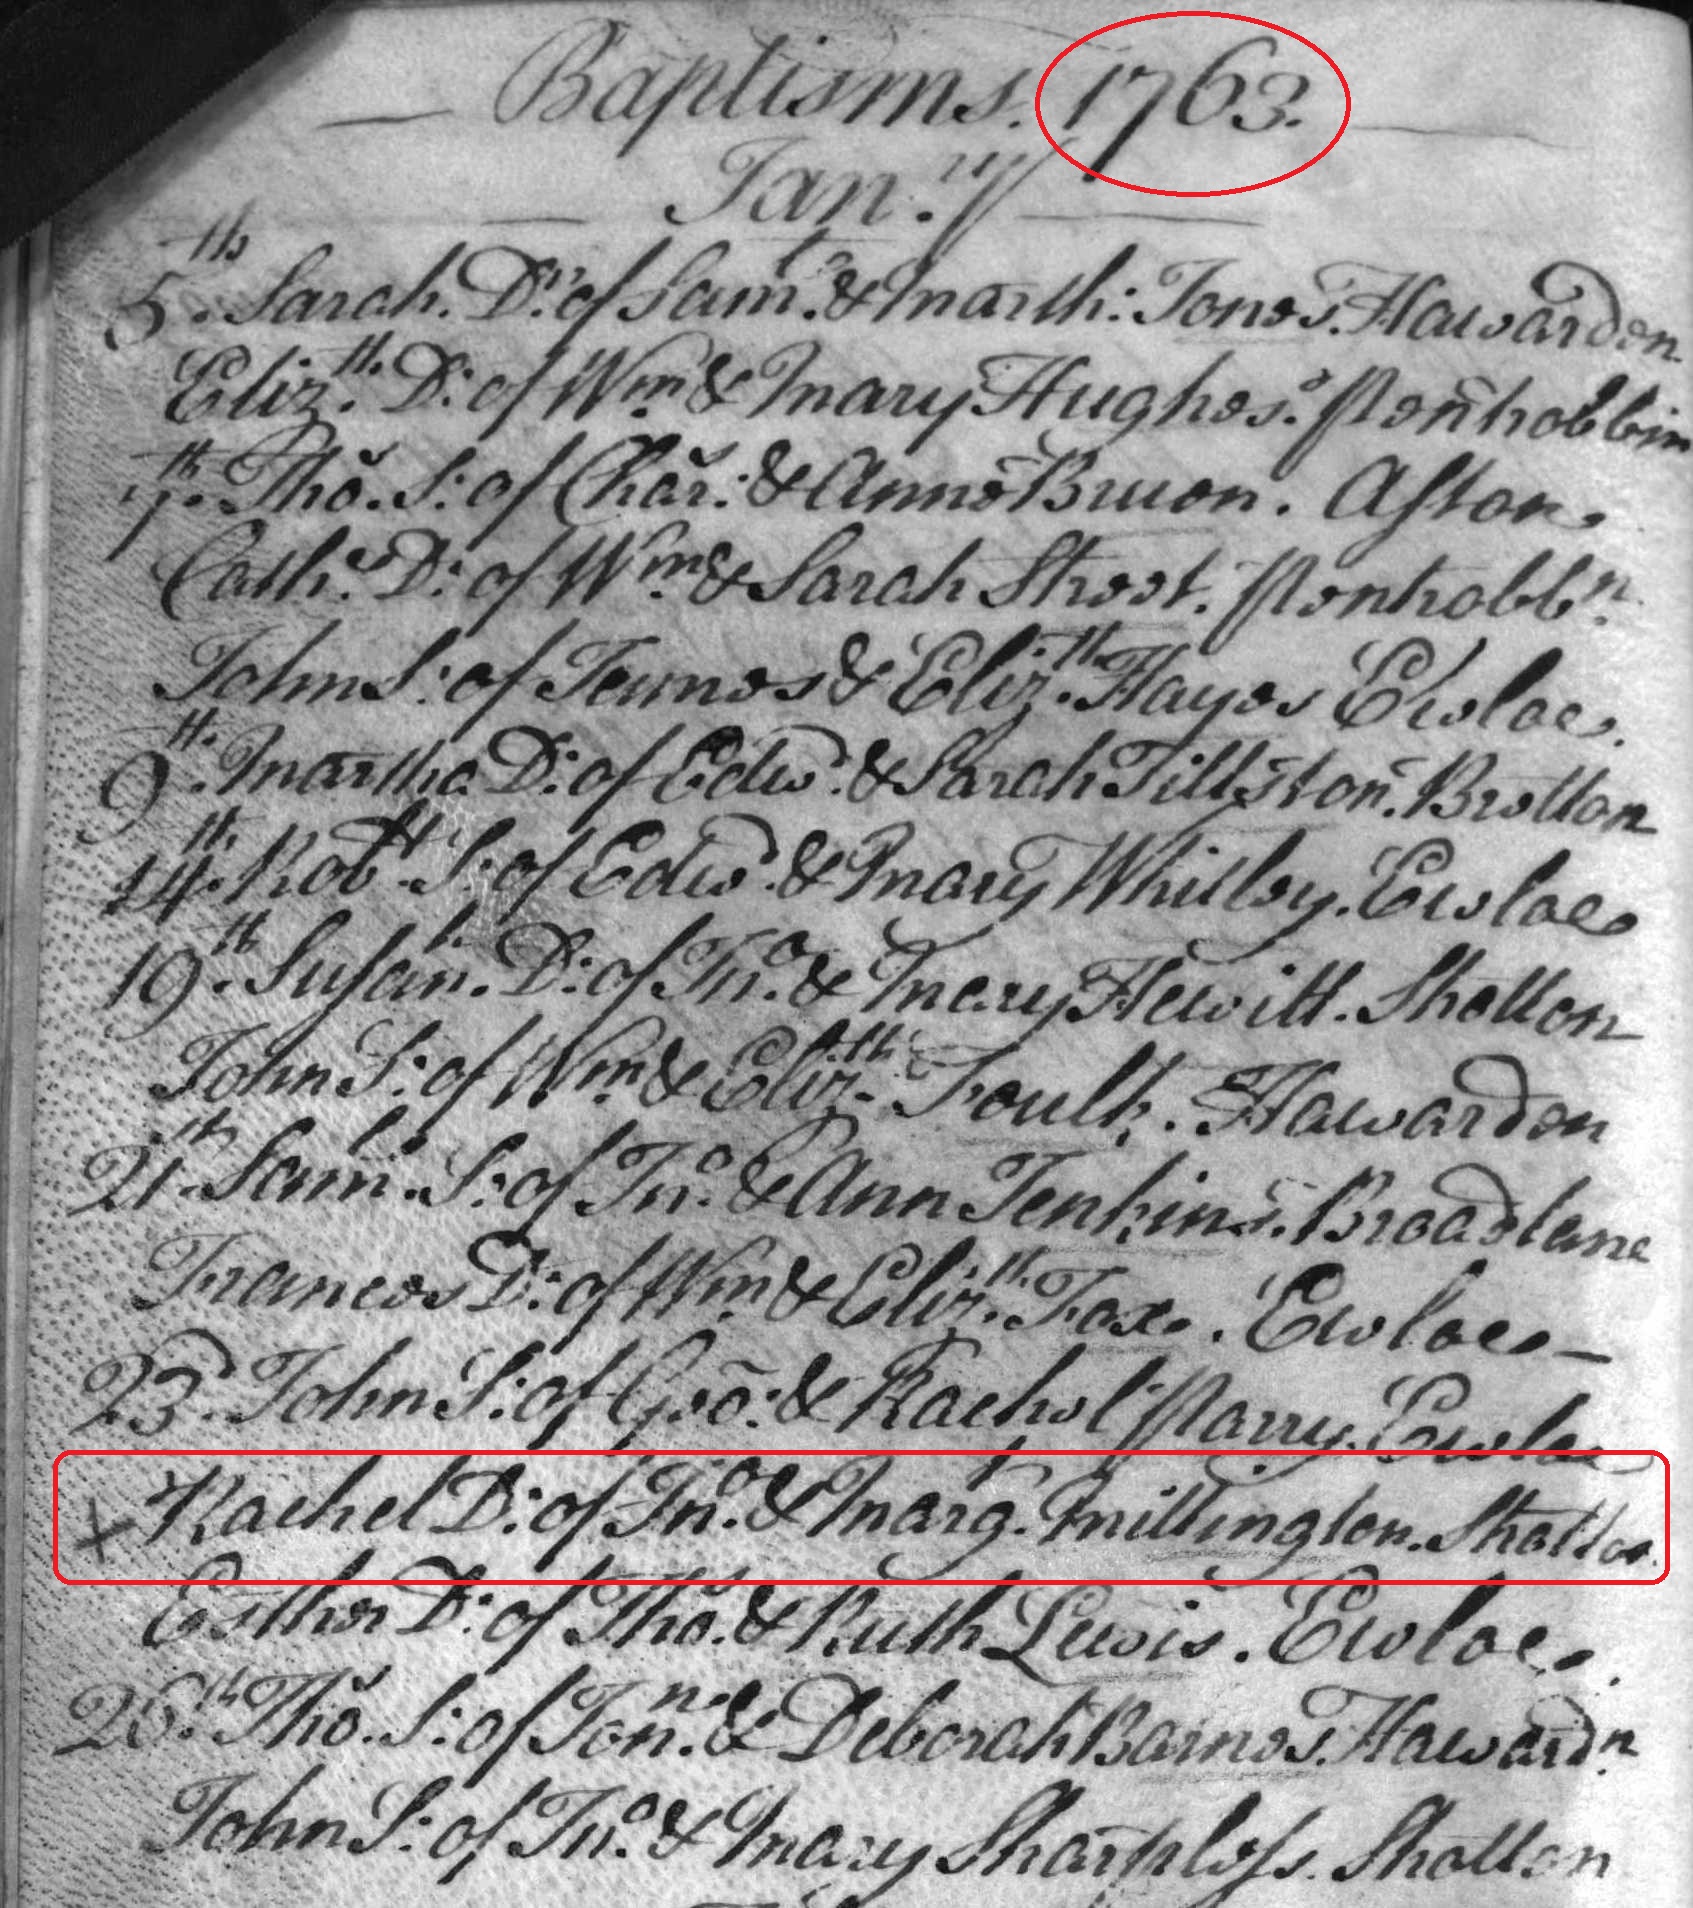 Baptisms. 1763.
Jan.ry
5.th Sarah. Dr. of Saml. & Marth: Jones. Hawarden
Eliz.th D: of Wm. & Mary Hughes. Penhobbin
7.th Tho. S: of Char: & Anne Bruen. Aston.
Cath.e D: of Wm. & Sarah Street. Penhobb.n
John S: of James & Eliz.th Hayes Ewloe.
9.th Martha D: of Edw.d & Sarah Tillston. Bretton
14.th Rob.t S: of Edw.d & Mary Whitley. Ewloe
19.th Susan.h D: of Jn.o & Mary Hewitt. Shotton
John S: of Wm. & Eliz.th Foulk. Hawarden
21.th Sam.l S: of Jn.o & Ann Jenkins. Broadlane
Frances D: of Wm. & Eliz.th Fox. Ewloe
23.d John S: of Geo: & Rachel Parry. Ewloe
x Rachel D: of Jn.o & Marg.t Millington. Shotton.
Esther D: of Tho.s & Ruth Lewis. Ewloe.
26.th Tho. S: of Jon.n & Deborah Barnes. Haward.n
John S: of Jn.o & Mary Sharpless. Shotton